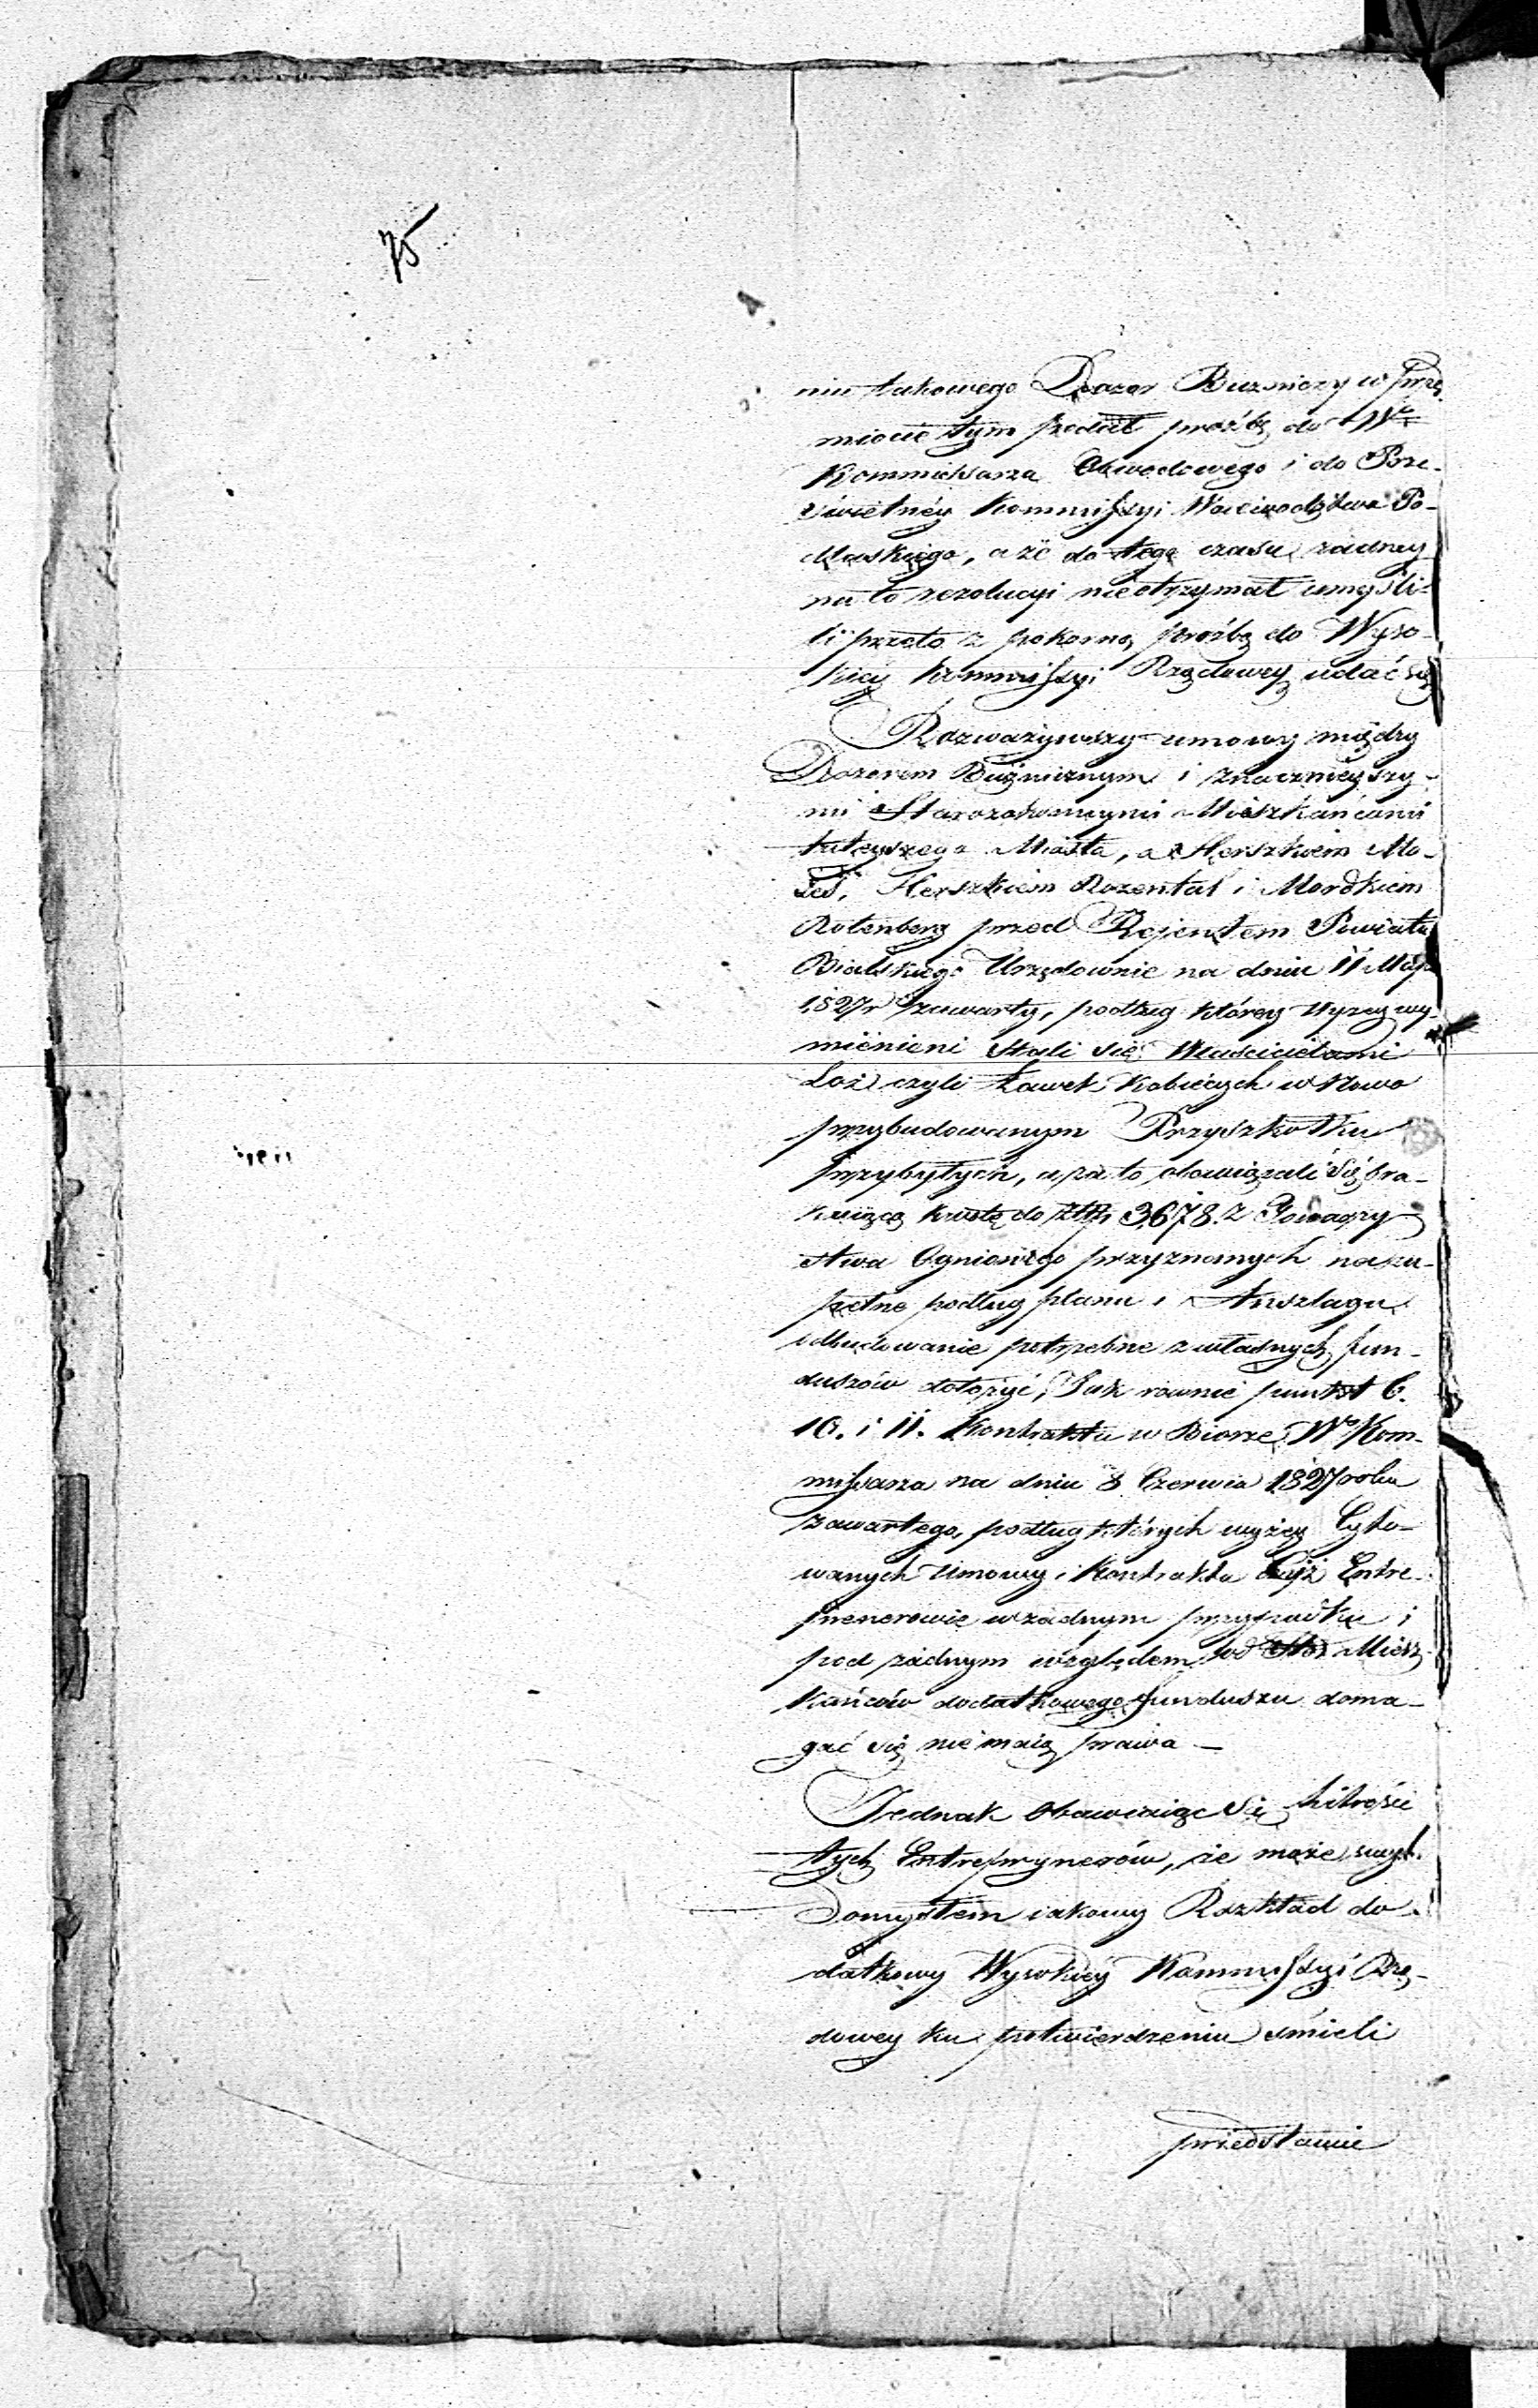 75
niu takowego Dozor Bużniczy w prze
miocie tym podał prośbę do W°
Kommissarza Obwodowego i do Prze-
świetnéy Kommissyi Woiewodztwa Po-
dlaskiego, a że do tego czasu żadney
na to rezolucyi nie otrzymał umyśli-
li przeto z pokorną prośbą do Wyso-
kiey Kommissyi Rządowey udać się
Rozważywszy umowy między
Dozorem Bużnicznym i znacznieyszy-
mi Starozakonnymi Mieszkańcami
tuteyszego Miasta, a Herszkiem Mo-
Herszkiem Rozental i Mordkiem
Rotenberg przed Rejentem Powiatu
Bialskiego Urzędownie na dniu 11 Maja
1827r zawarty, podług którey wyzey wy-
mienieni stali się Właścicielami
Loż czyli Ławek Kobiecych w Nowo
przybudowanym Przyszkołku
przybytych, a za to obowiązali się bra-
kuiącą kwotę do złp 3678. z Towarzy
stwa Ogniowego przyznanych na zu-
pełne podług planu i Anszlagu
odbudowanie potrzebne z własnych fun-
duszów dołożyć, Jak rownie punkt 6.
10. i 11. Kontraktu w Biorze W° Kom-
missarza na dniu 8 Czerwca 1827 roku
zawartego, podług których wyżey Cyto-
wanych Umowy i Kontraktu Ciż Entre-
prenerowie w żadnym przypadku i
pod żadnym względem od Stoz Miesz
kańców dodatkowego funduszu doma-
gać się nie maią prawa —
Jednak obawiaiąc się hitrości
tych Entreprynerów, że może swych
Domysłem iakowy Rozkład do-
datkowy Wysokiey Kommissyi Rzą-
dowey ku potwierdzeniu smieli
przedstawić